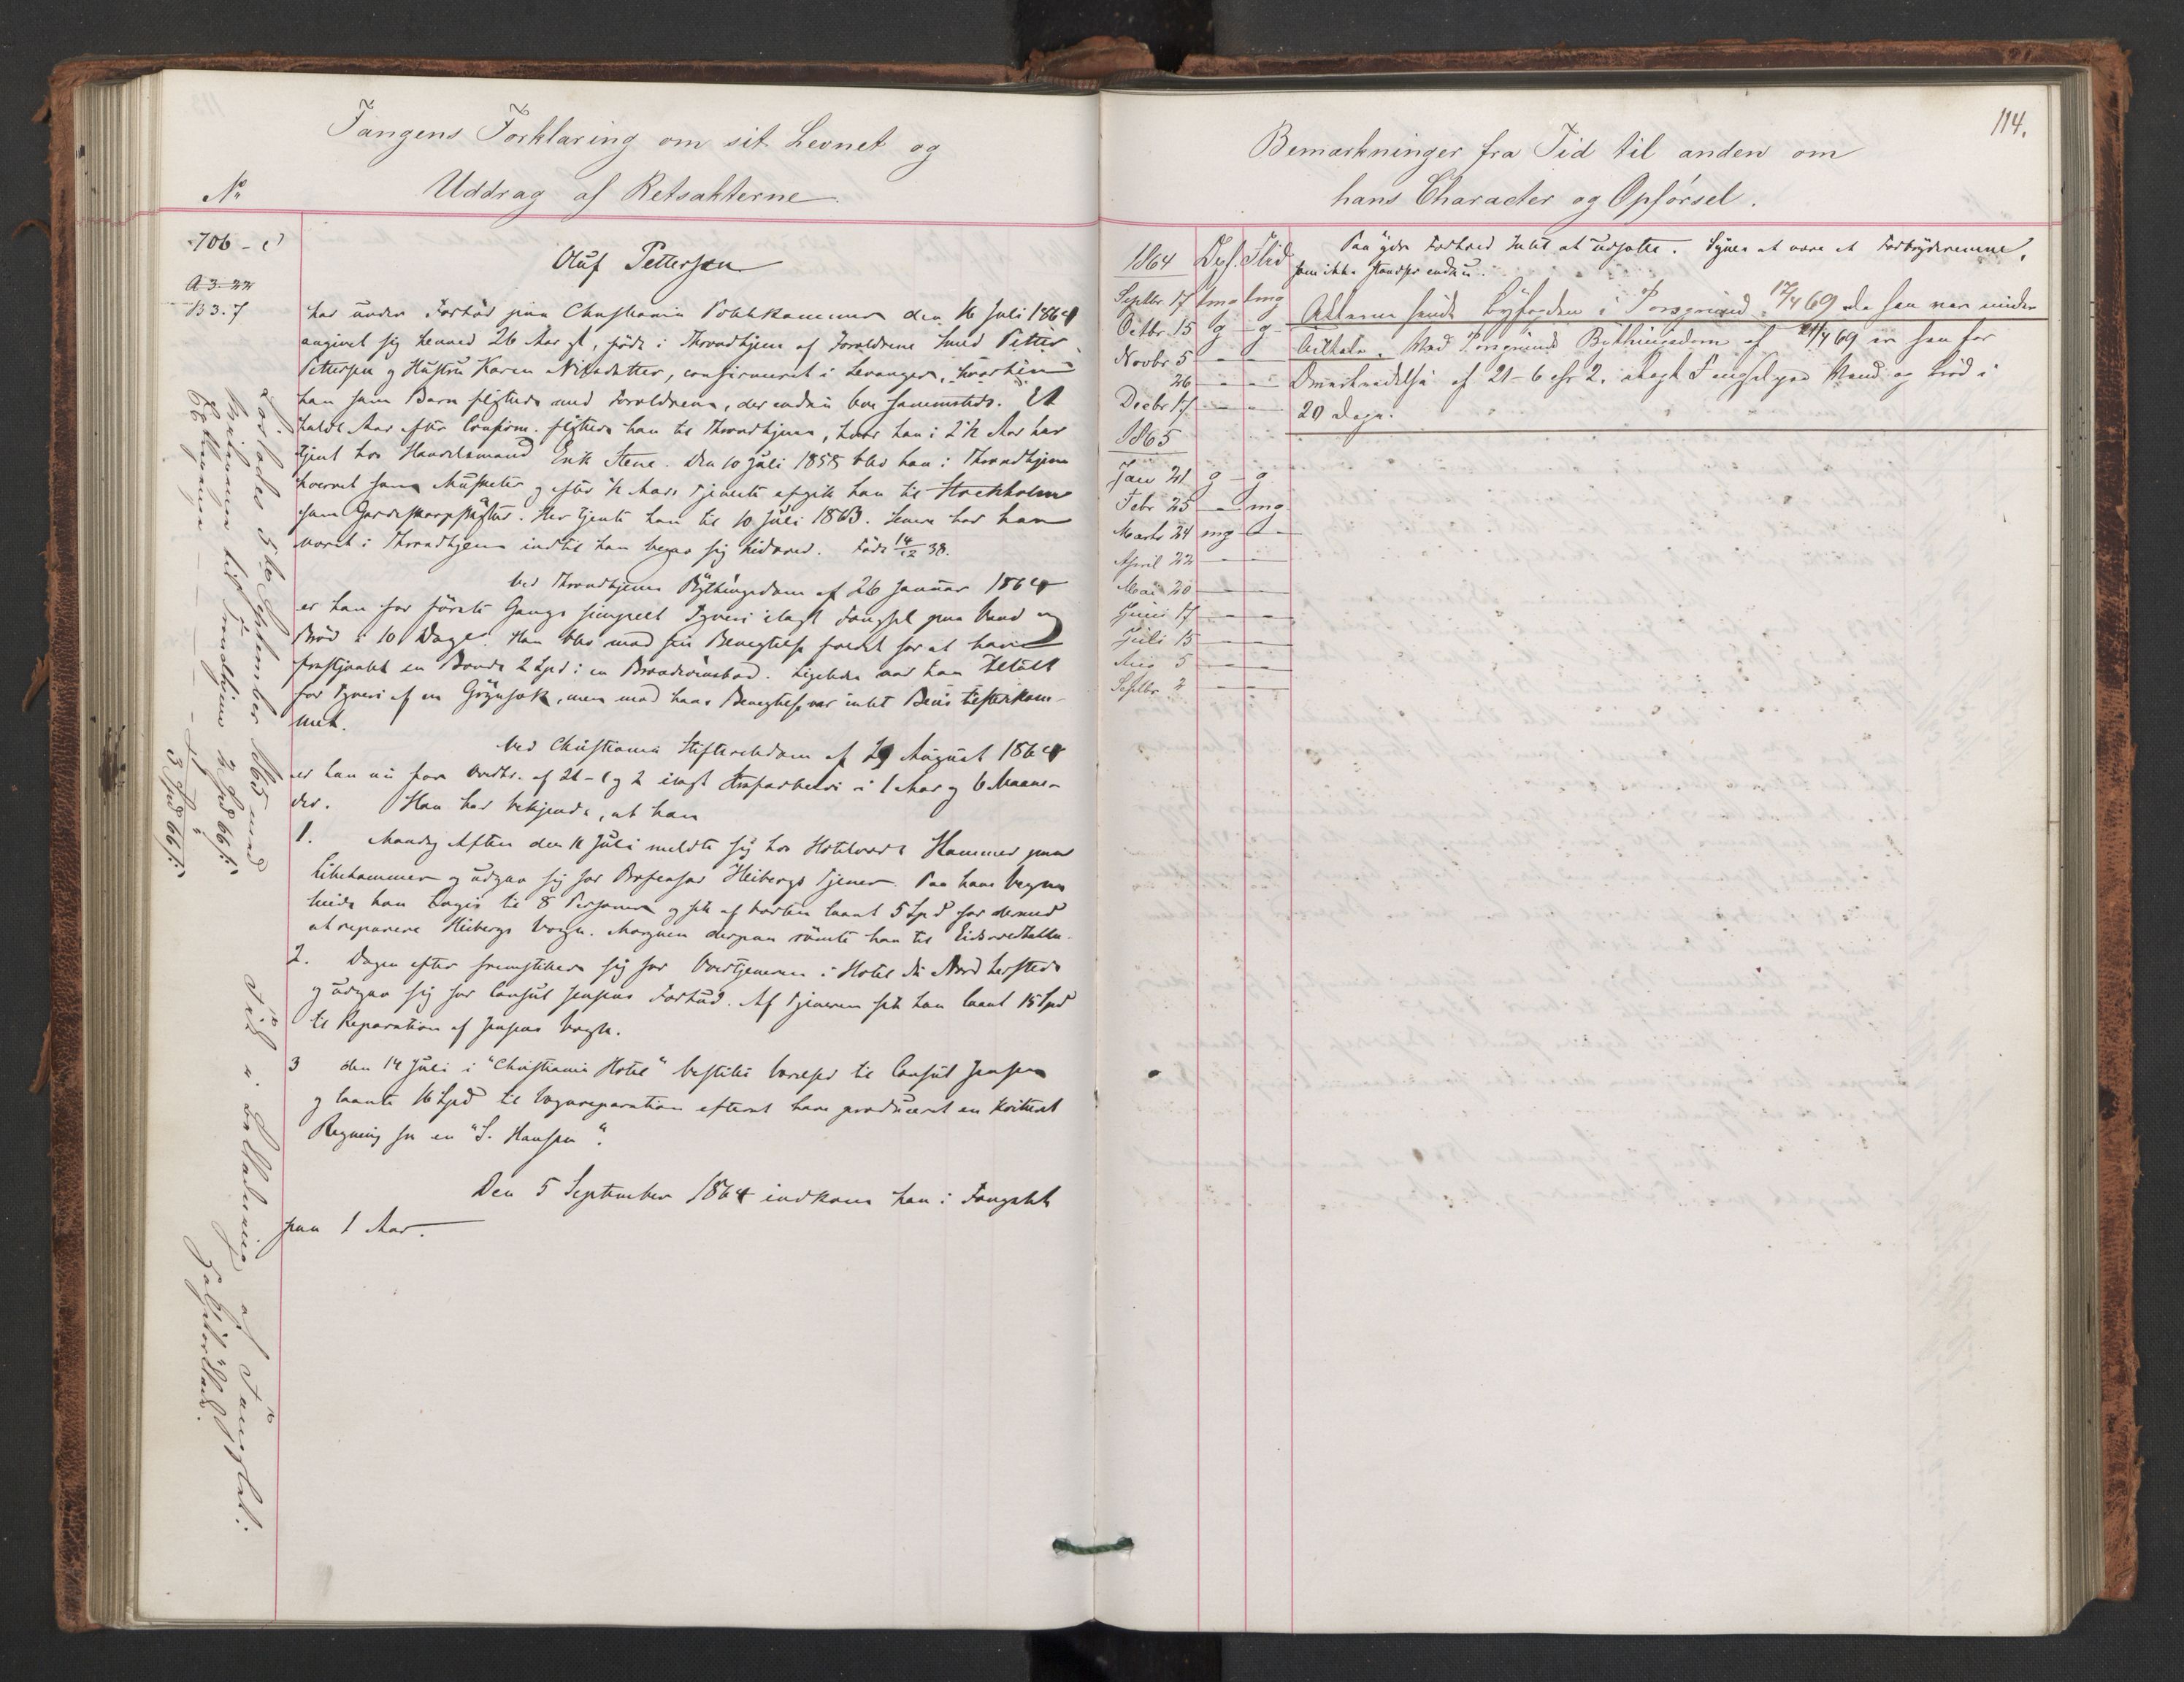 Fangens Forklaring om sit Levnet og
Uddrag af Retsakterne
No
706 - e
A 3. 22
B 3. 7
Oluf Pettersen
har under Forhør paa Christiania Politikammer den 16 Juli 1864
angivet sig henved 26 Aar gl, født i Throndhjem af Forældrene Smed Petter
Pettersen og Hustru Karen Nilsdatter, confirmeret i Levanger, hvorhen
han som Barn flyttede med Forældrene, der endnu boe sammesteds. Et
halvt Aar efter Confirm. flyttede han til Throndhjem, hvor han i 2 1/2 Aar har
tjent hos Handelsmand Erik Stene. Den 10 Juli 1858 blev han i Throndhjem
hvervet som Musketer og efter 1/2 Aars Tjeneste afgik han til Stockholm
som Gardeskarpskytter. Her tjente han til 10 Juli 1863. Senere har han
været i Throndhjem indtil han begav sig hidover. Født 14/12 38.
Ved Throndhjems Bythingsdom af 26 Januar 1864
er han for første Gangs simpelt Tyveri ilagt Fængsel paa Vand og
Brød i 10 Dage. Han blev mod sin Benegtelse fældet for at have
frastjaalet en Bonde 2 Spd i en Brændeviinsbod. Ligeledes var han tiltalt
for Tyveri af en Grynsæk, men mod hans Benegtelse var intet Beviis tilstrækom-
met.
Ved Christiania Stiftsretsdom af 29 August 1864
er han nu for Overtr. af 21 - 1 og 2 ilagt Strafarbeide i 1 Aar og 6 Maane-
der. Han har bekjendt, at han
1. Mandag Aften den 11 Juli meldte sig hos Hotelvært Hammer paa
Lillehammer og udgav sig for Professor Heibergs Tjener. Paa hans Vegne
leiede han Logis til 8 Personer og fik af Værten laant 5 Spd for dermed
at reparere Heibergs Vogn. Morgenen derpaa rømte han til Eidsvedbakken.
2. Dagen efter fremstillede sig for Overtjeneren i Hotel du Nord hersteds
og udgav sig for Consul Jensens Forbud. Af Tjeneren fik han laant 15 Spd
til Reparation af Jensens Vogn.
3 den 14 Juli i "Christiania Hotel" bestilte Værelser til Consul Jensen
og laante 16 Spd til Vognreparation efter at have produceret en kvitteret
Regning fra en "S. Hansen".
Den 5 September 1864 indkom han i Fangstedet
paa 1 Aar.
Løslades 5te September 1865 med
til Trondhjem 2 Spd 66 s:
3 Spd 66 s:
Fik i af Fængslet:
1864 Opf. Flid
Septbr. 17 tmg tmg
Octbr. 15 g - g -
Novbr 5 - -
26 - -
Decbr 17 - -
1865
Jan 21 g - g
Febr 25 - mg
Marts 24 mg - -
April 22 - -
Mai 20 - -
Juni 17 - -
Juli 15 - -
Aug 5 - -
Septbr. 2 - -
Bemærkninger fra Tid til anden om
hans Character og Opførsel.
114.
Paa ydre Forhold Intet at udsætte. Synes at være et Forbryderemne,
som ikke standser endnu.
Akterne sendt Byfogden i Porsgrund 17/4 69 da han var under
Tiltale. Ved Porsgrunds Bythingsdom af 21/4 69 er han for
Overtrædelse af 21 - 6 cfr 2. ilagt Fængsel paa Vand og Brød i
20 Dage.